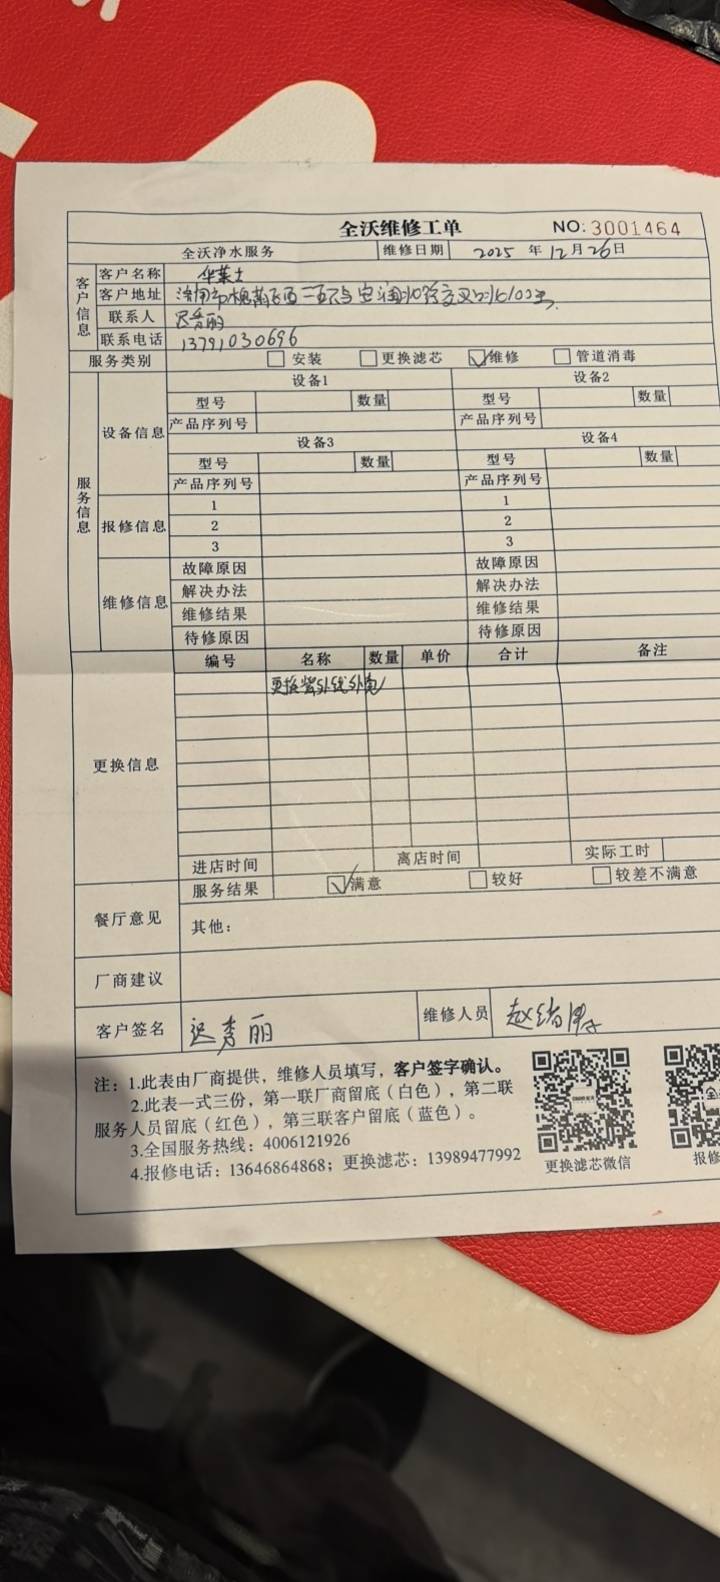 全沃维修工单 NO: 3001464
全沃净水服务 维修日期 2025 年 12 月 26 日
客户信息
客户名称 华莱士
客户地址
联系人 迟秀丽
联系电话 13791030696
服务类别 安装 更换滤芯 维修 管道消毒
服务信息
设备信息
设备1 设备2
型号 数量 型号 数量
产品序列号 产品序列号
设备3 设备4
型号 数量 型号 数量
产品序列号 产品序列号
报修信息
1 1
2 2
3 3
维修信息
故障原因 故障原因
解决办法 解决办法
维修结果 维修结果
待修原因 待修原因
更换信息
编号 名称 数量 单价 合计 备注
更换紫外线外包
进店时间 离店时间 实际工时
餐厅意见
服务结果 满意 较好 较差不满意
其他：
厂商建议
客户签名 迟秀丽 维修人员 赵绪
注：1.此表由厂商提供，维修人员填写，客户签字确认。
2.此表一式三份，第一联厂商留底（白色），第二联
服务人员留底（红色），第三联客户留底（蓝色）。
3.全国服务热线：4006121926
4.报修电话：13646864868；更换滤芯：13989477992
更换滤芯微信 报修